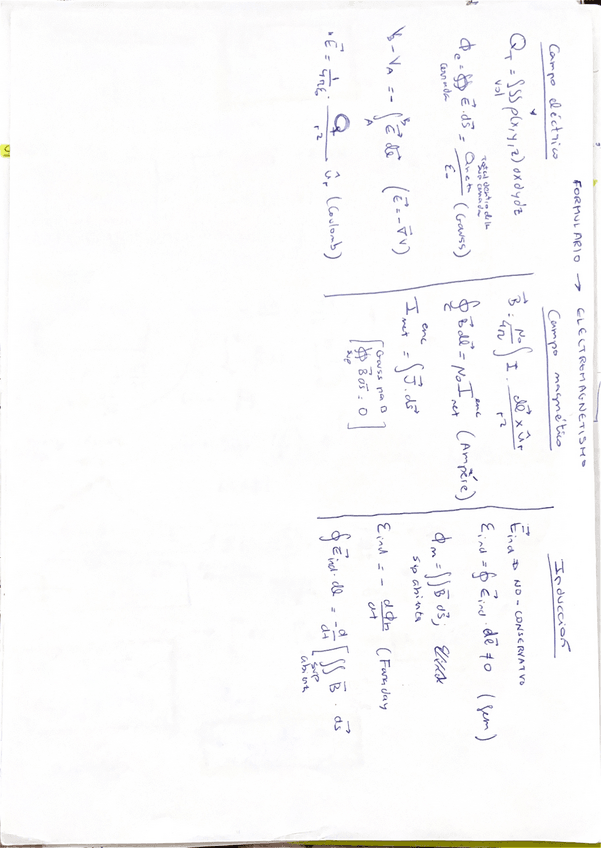 FORMULARIO → ELECTROMAGNETISMO
Campo eléctrico
Q_T = ∫∫∫ ρ(x,y,z) dx dy dz
vol
Φ_e = ∯ E⃗·ds⃗ = Q_neta / ε₀ (Gauss)
cerrada
V_B - V_A = - ∫_A^B E⃗ dl⃗ (E⃗ = -∇⃗V)
E⃗ = 1/4πε₀ · Q/r² û_r (Coulomb)
Campo magnético
B⃗ = μ₀/4π ∫ I · dl⃗ x û_r / r²
∮_C B⃗ dl⃗ = μ₀ I_net^enc (Ampére)
I_net^enc = ∫ J⃗ · ds⃗
[Gauss para B
∯_sup B⃗ ds⃗ = 0]
Inducción
E⃗ind ≠ NO-CONSERVATIVO
ε ind = ∮ E⃗ind · dl⃗ ≠ 0 (fem)
Φ_m = ∫∫ B⃗ ds⃗ ;
sup abierta
ε ind = - dΦ_m/dt (Faraday)
∮ E⃗ind · dl⃗ = -d/dt [∫∫ B⃗ · ds⃗
sup
abierta